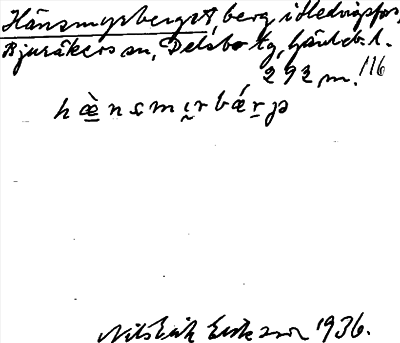 Hänsmyrberget, berg i Hedvigsfors,
Bjuråkers sn, Delsbo tg, Gävleb. l.
292 m. 116
hæ̀nsmırbǽrp
Nils Erik Eriksson 1936.